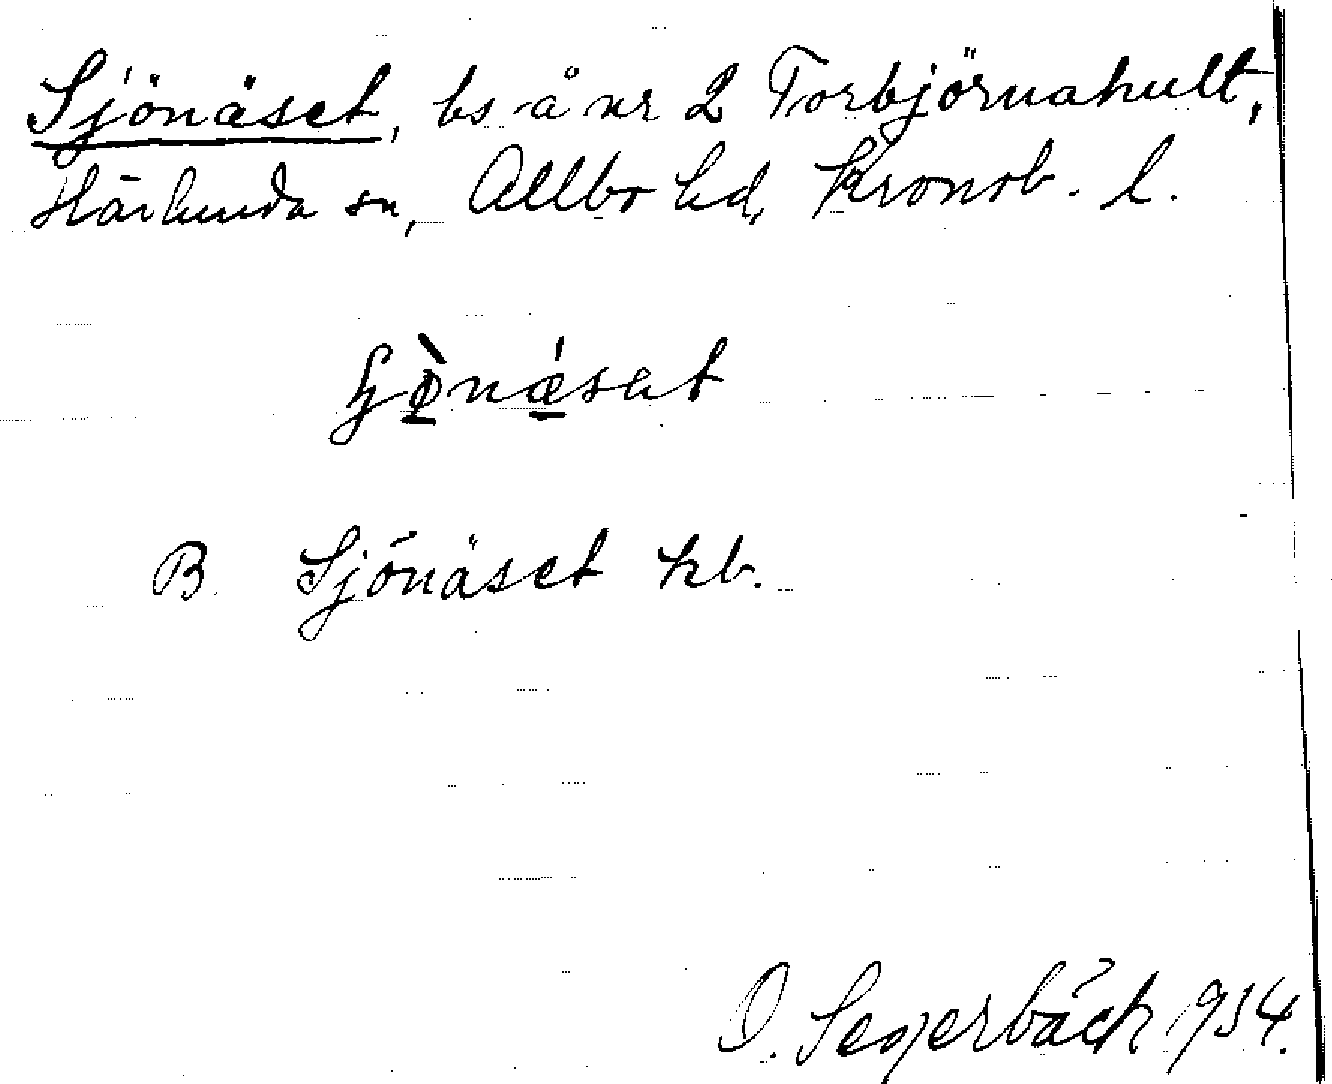 Sjönäset, bs å nr 2 Torbjörnahult,
Härlunda sn, Allbo hd, Kronob. l.
B. Sjönäset kb.
O. Segerbäck 1934.